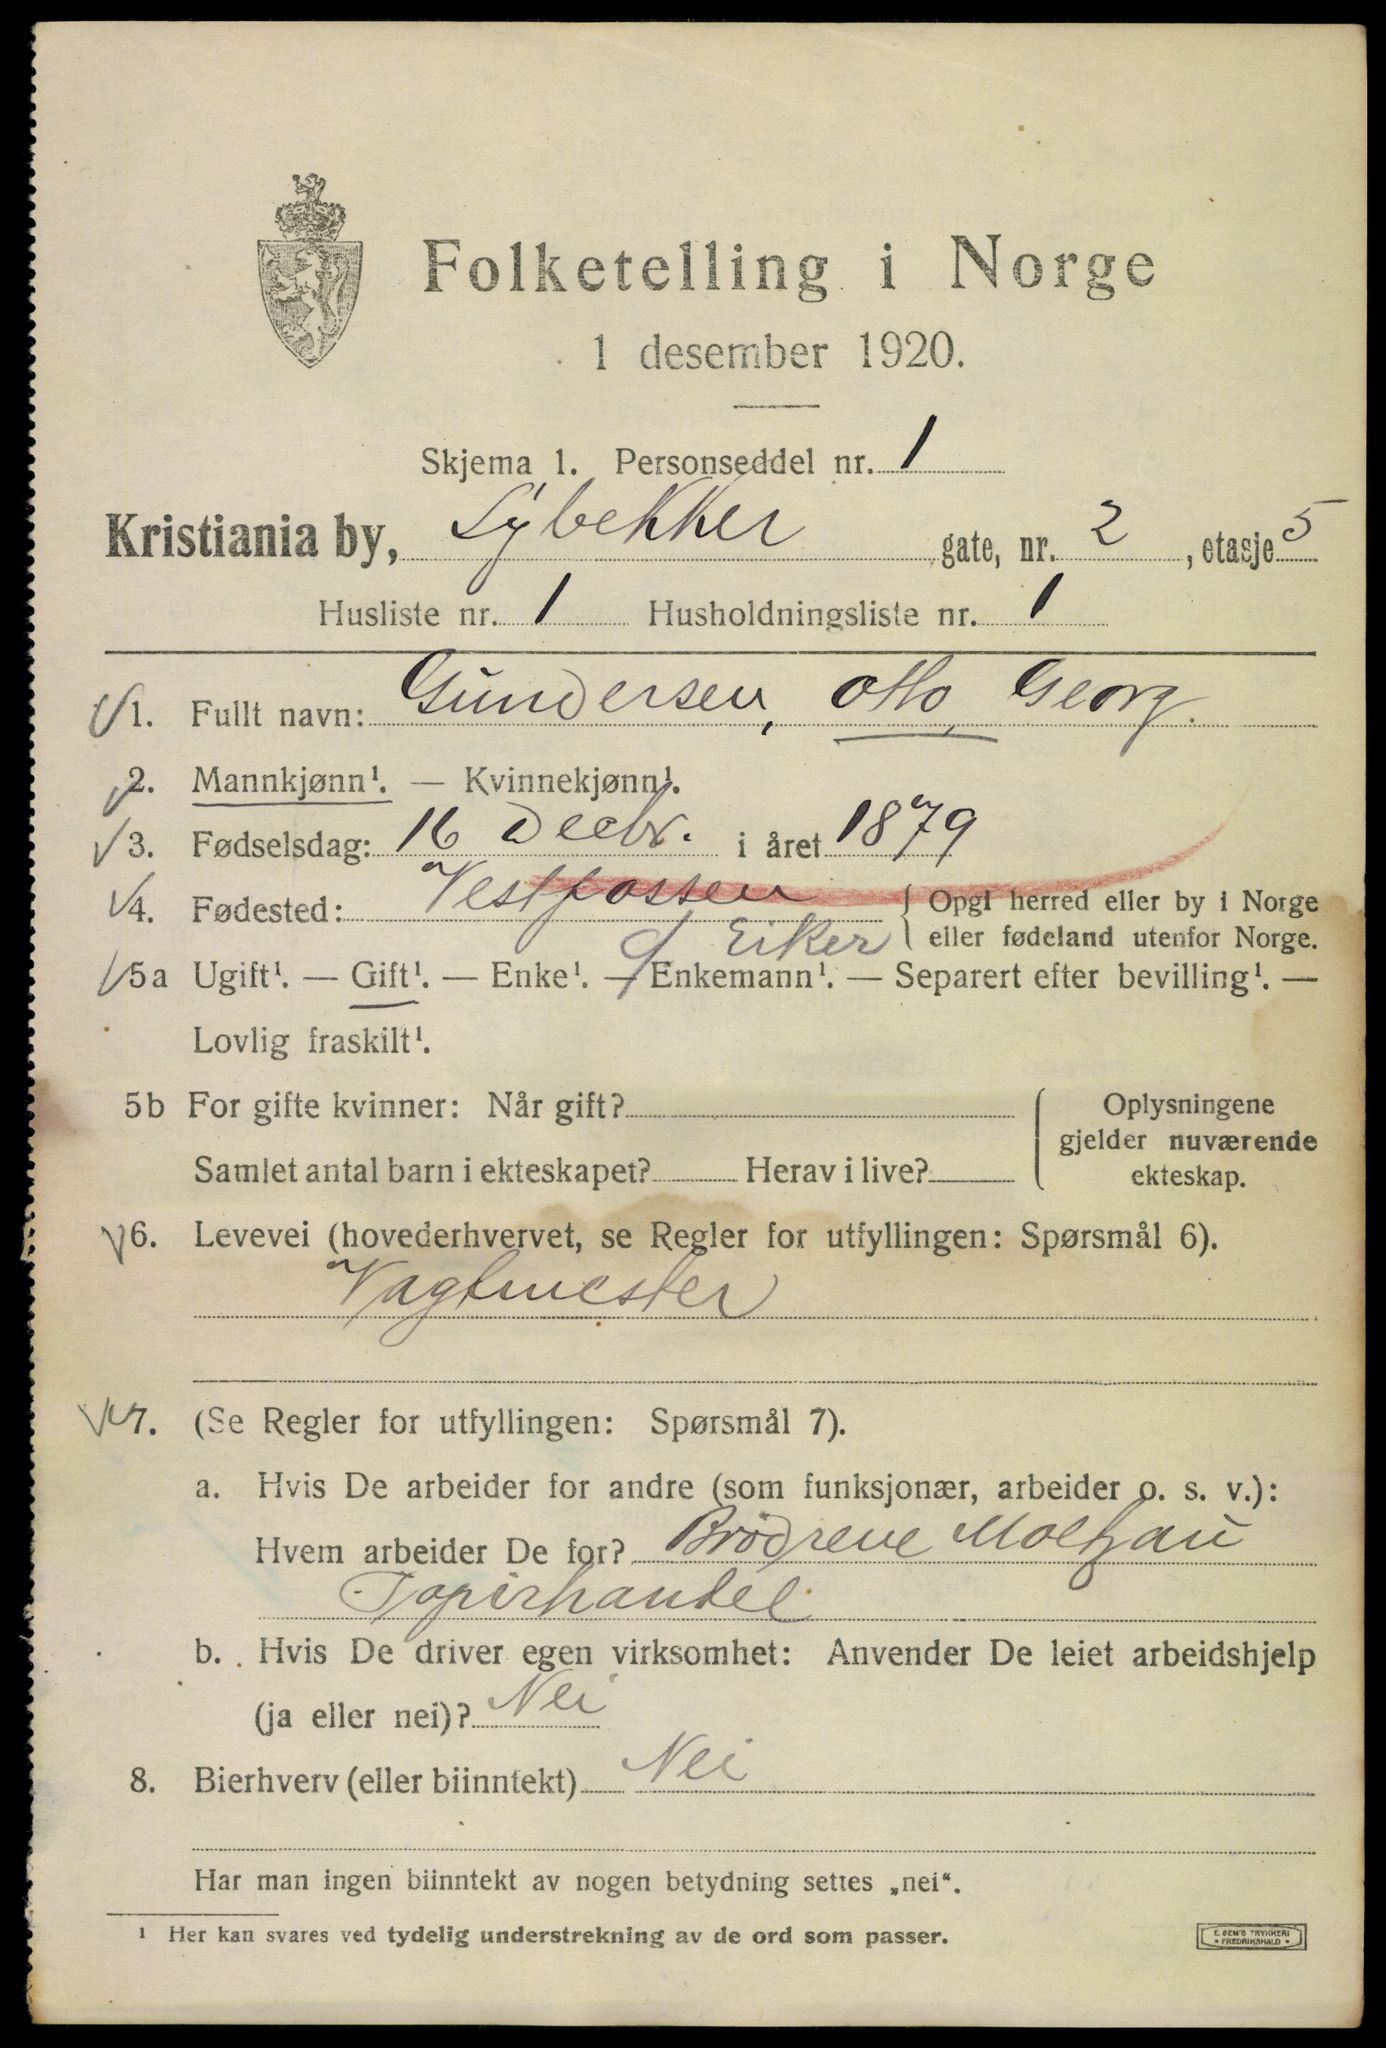 Folketelling i Norge
1 desember 1920.
Skjema 1. Personseddel nr. 1
Kristiania by, Lybekker gate, nr. 2, etasje 5
Husliste nr. 1 Husholdningsliste nr. 1
1. Fullt navn: Gundersen, Otto, Georg.
2. Mannkjønn¹. — Kvinnekjønn¹.
3. Fødselsdag: 16 Decbr. i året 1879
4. Fødested: Vestfossen { Opgi herred eller by i Norge
Ø Eiker eller fødeland utenfor Norge.
5a Ugift¹. — Gift¹. — Enke¹. — Enkemann¹. — Separert efter bevilling¹. —
Lovlig fraskilt¹.
5b For gifte kvinner: Når gift? { Oplysningene
gjelder nuværende
Samlet antal barn i ekteskapet? Herav i live? ekteskap.
6. Levevei (hovederhvervet, se Regler for utfyllingen: Spørsmål 6).
Vagtmester
7. (Se Regler for utfyllingen: Spørsmål 7).
a. Hvis De arbeider for andre (som funksjonær, arbeider o. s. v.):
Hvem arbeider De for? Brødrene Moltzau
Papirhandel
b. Hvis De driver egen virksomhet: Anvender De leiet arbeidshjelp
(ja eller nei)? Nei
8. Bierhverv (eller biinntekt) Nei
Har man ingen biinntekt av nogen betydning settes „nei“.
¹ Her kan svares ved tydelig understrekning av de ord som passer.
E. SEM'S TRYKKERI
• FREDRIKSHALD •